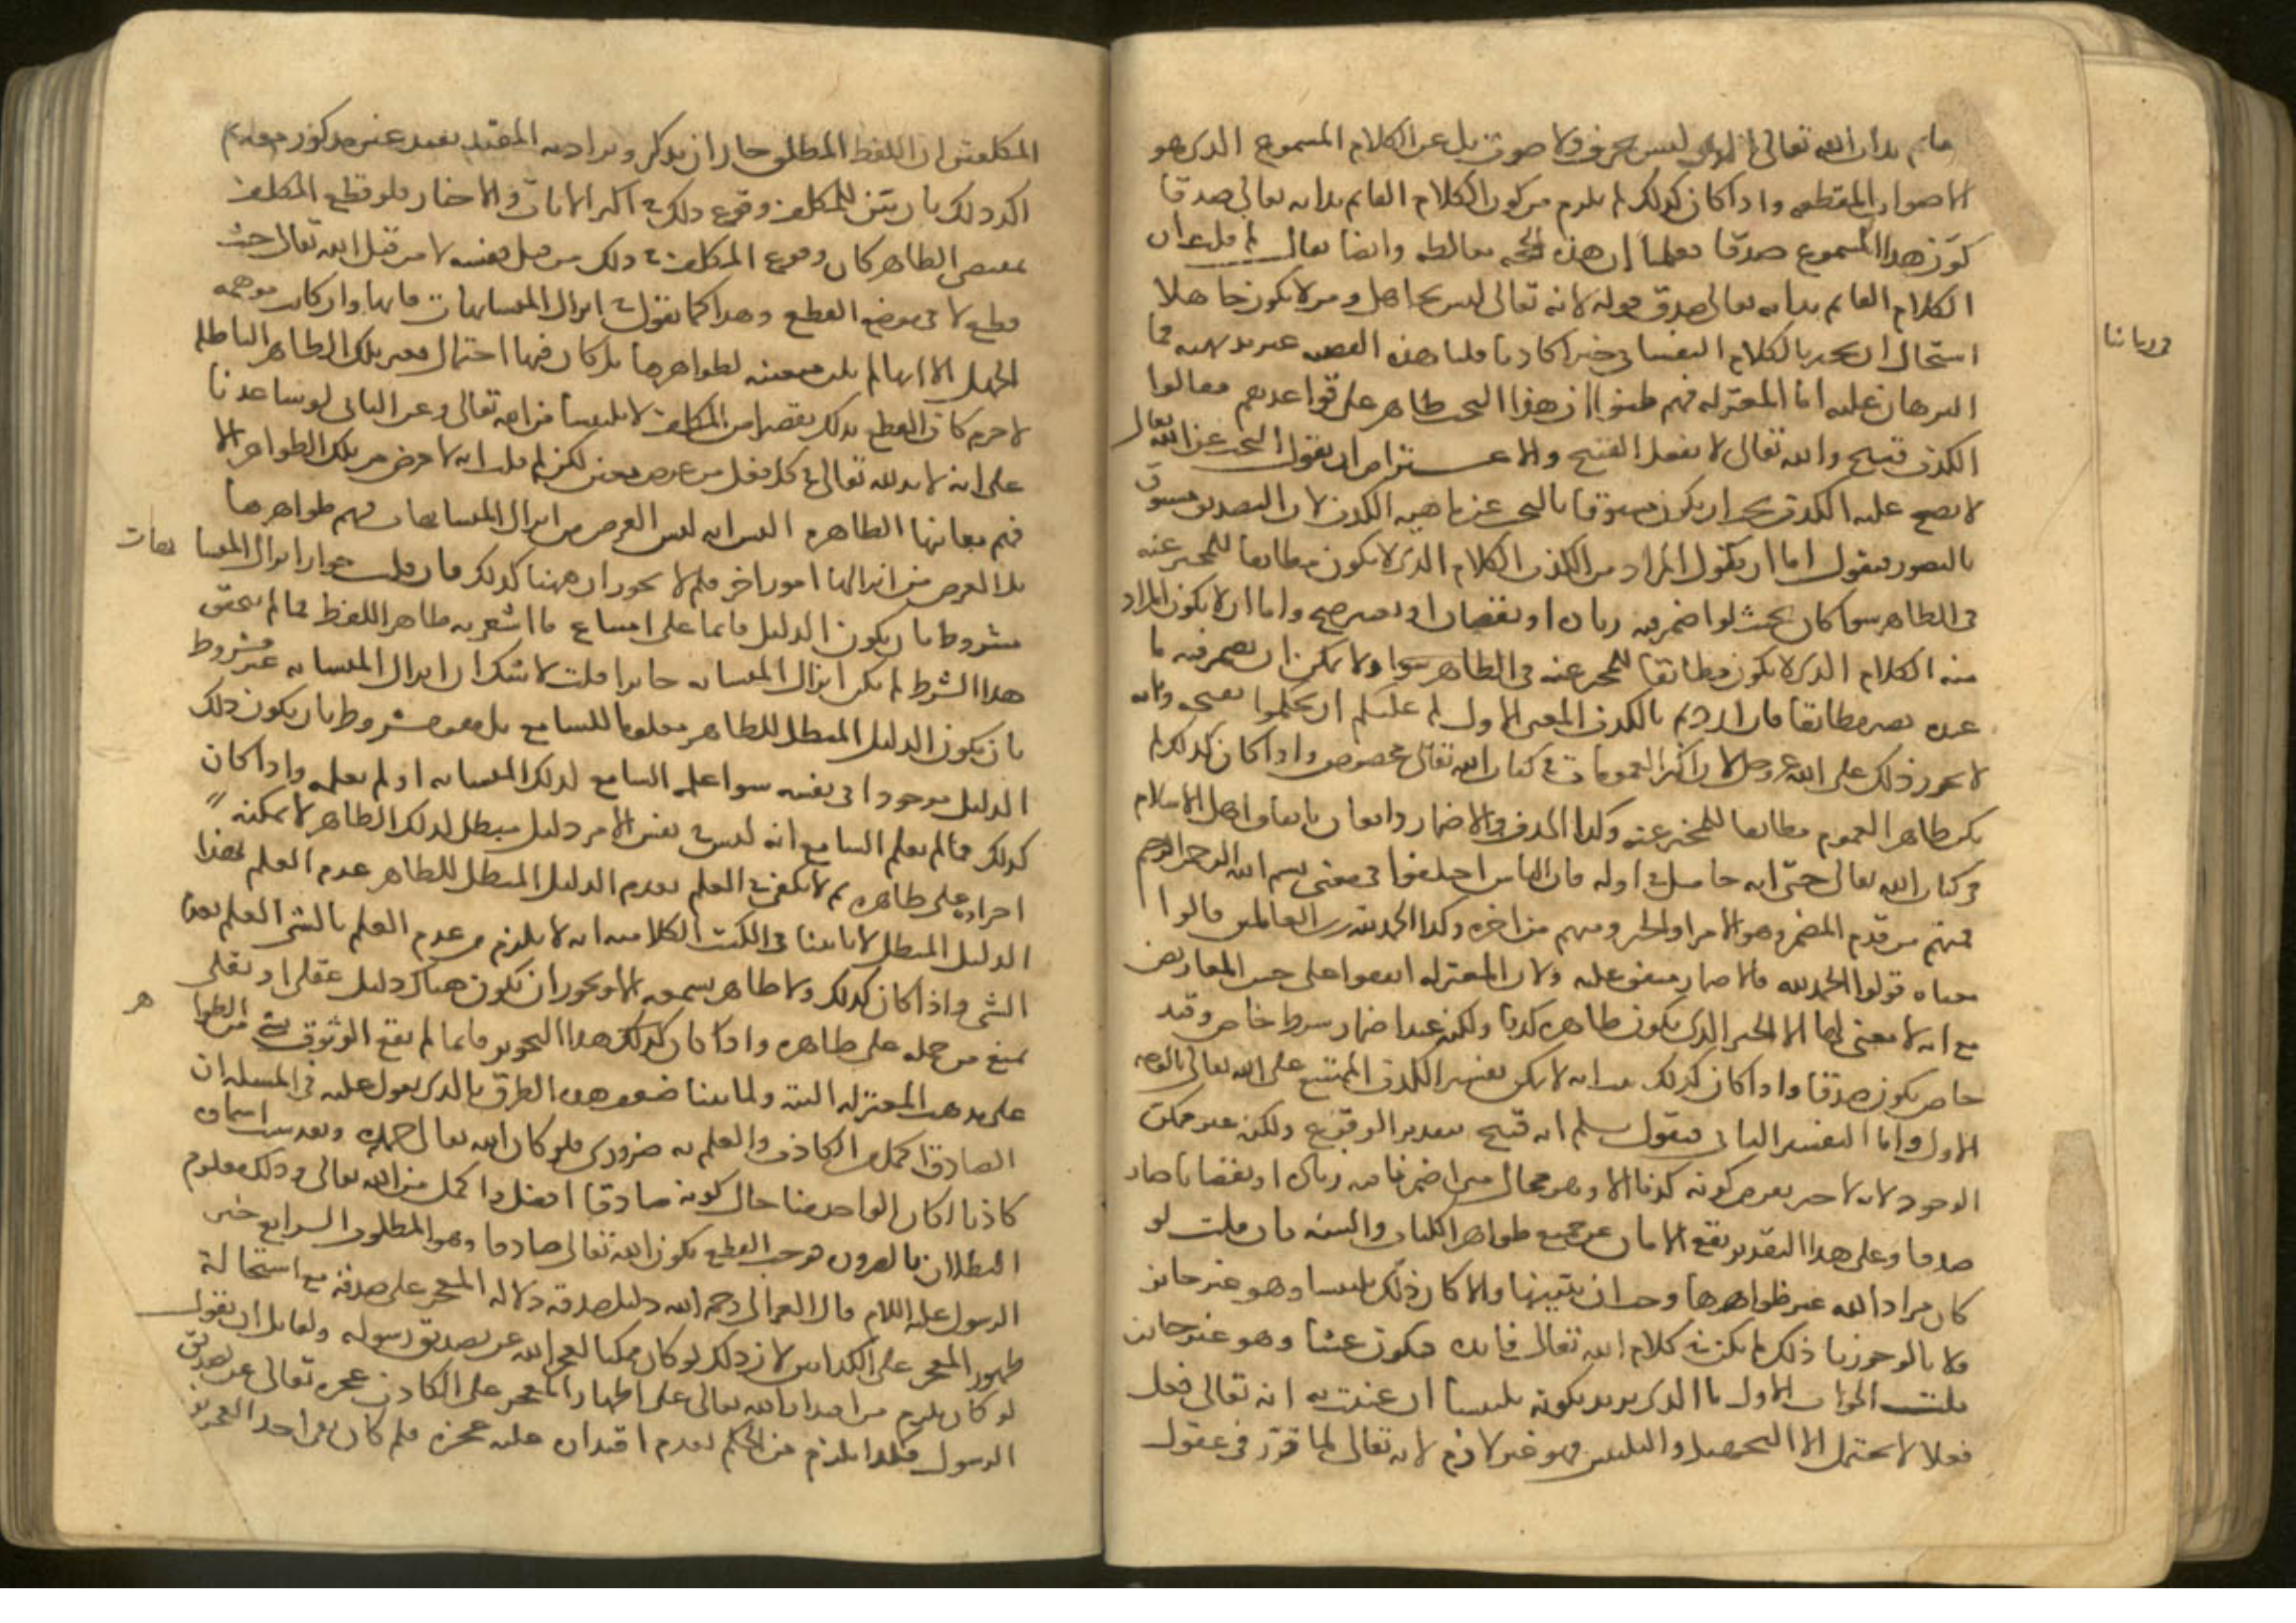 قائم بذات الله تعالى الذي ليس بحرف ولا صوت بل عن الكلام المسموع الذي هو
الاصوات المقطعه واذا كان كذلك لم يلزم من كون الكلام القائم بذاته تعالى صدقا
كون هذا المسموع صدقا فعلمنا ان هذه الحجه مغالطه وايضا يقال لم قلت ان
الكلام القائم بذاته تعالى صدق قوله لانه تعالى ليس بجاهل ومن لا يكون جاهلا
استحال ان يخبر بالكلام النفساني خبرا كاذبا قلنا هذه القضيه غير بديهيه فما
البرهان عليه اما المعتزله فهم ظنوا ان هذا البحث ظاهر على قواعدهم فقالوا
الكذب قبيح والله تعالى لا يفعل القبيح والاعتراض ان نقول البحث عن الله تعالى
لا يصح عليه الكذب يجب ان يكون مسبوقا بالبحث عن ماهيه الكذب لان التصديق مسبوق
بالتصور فنقول اما ان يكون المراد من الكذب الكلام الذي لا يكون مطابقا للمخبر عنه
في الظاهر سوا كان بحيث لو اضمر فيه زيادة او نقصان او تغيير صح واما ان لا يكون المراد
منه الكلام الذي لا يكون مطابقا للمخبر عنه في الظاهر سوا ولا يمكن ان يضمر فيه ما
عنده يصير مطابقا فان اردتم بالكذب المعنى الاول لم يمكنكم ان تحكموا بقبحه وبانه
لا يجوز ذلك على الله عز وجل لان اكثر العمومات في كتاب الله تعالى مخصوص واذا كان كذلك لم
يكن ظاهر العموم مطابقا للمخبر عنه وكذا الحذف والاضمار واقعان باتفاق اهل الاسلام
في كتاب الله تعالى حتى انه حاصل في اوله فان الناس اختلفوا في معنى بسم الله الرحمن الرحيم
فمنهم من قدم المضمر وهو الامر او الخبر ومنهم من اخره وكذا الحمد لله رب العالمين قالوا
معناه قولوا الحمد لله فالاضمار متفق عليه ولان المعتزله اتفقوا على حسن المعاريض
مع انه لا معنى لها الا الخبر الذي يكون ظاهره كذبا ولكنه عند اضمار شرط خاص وقيد
خاص يكون صدقا واذا كان كذلك ثبت انه لا يمكن تفسير الكذب الممتنع على الله تعالى بالوجه
الاول واما التفسير الثاني فنقول نسلم انه قبيح بتقدير الوقوع ولكن غير ممكن
الوجود لانه لا خبر يفرض كونه كذبا الا وهو بحال متى اضمرنا فيه زيادة او نقصانا صار
صدقا وعلى هذا التقدير يقع الامان عن جميع ظواهر الكتاب والسنه فان قلت لو
كان مراد الله غير ظواهرها وجب ان يبينها والا كان ذلك تلبيسا وهو غير جائز
ولانا لو جوزنا ذلك لم يكن في كلام الله تعالى فائده فيكون عبثا وهو غير جائز
قلت الجواب الاول ما الذي يريد بكونه تلبيسا ان عنيت به انه تعالى فعل
فعلا لا يحتمل الا التجهيل والتلبيس فهو غير لازم لانه تعالى لما قرر في عقول
في زماننا
المكلفين ان اللفظ المطلق جاز ان يذكر ويراد به المقيد بقيد غير مذكور معه ثم
اكد ذلك بان بين للمكلف وقوع ذلك في اكثر الايات والاخبار فلو قطع المكلف
بمقتضى الظاهر كان وقوع المكلف في ذلك من قبل نفسه لا من قبل الله تعالى حيث
قطع لا في موضع القطع وهذا كما نقول في انزال المتشابهات فانها وان كانت موهمه
للجهل الا انها لم تكن متعينه لظواهرها بل كان فيها احتمال لغير تلك الظاهر الباطله
لا جرم كان القطع بذلك تقصيرا من المكلف لا تلبيسا من الله تعالى وعن الثاني لو ساعدنا
على انه لا بد لله تعالى في كل فعل من غرض معين لكن لم قلت انه لا غرض من تلك الظواهر الا
فهم معانيها الظاهره اليس انه ليس الغرض من انزال المتشابهات فهم ظواهرها
بل الغرض من انزالها امور اخر فلم لا يجوز ان ههنا كذلك فان قلت جواز انزال المتشابهات
مشروط بان يكون الدليل قائما على امتناع ما اشعر به ظاهر اللفظ فما لم يتحقق
هذا الشرط لم يكن انزال المتشابه جائزا قلت لا شك ان انزال المتشابه غير مشروط
بان يكون الدليل المبطل للظاهر معلوما للسامع بل هو مشروط بان يكون ذلك
الدليل موجودا في نفسه سوا علم السامع لذلك المتشابه او لم يعلمه واذا كان
كذلك فما لم يعلم السامع انه ليس في نفس الامر دليل مبطل لذلك الظاهر لا يمكنه
اجراؤه على ظاهره ثم لا يكفي في العلم بعدم الدليل المبطل للظاهر عدم العلم بهذا
الدليل المبطل لانا بينا في الكتب الكلاميه انه لا يلزم من عدم العلم بالشي العلم بعدم
الشي واذا كان كذلك ولا ظاهر نسمعه الا ويجوز ان يكون هناك دليل عقلي او نقلي
يمنع من حمله على ظاهره واذا كان كذلك هذا التجويز قائما لم يقع الوثوق بشي من الظواهر
على مذهب المعتزله البته ولما بينا ضعف هذه الطرق فالذي نعول عليه في المسله ان
الصادق اكمل من الكاذب والعلم به ضروري فلو كان الله تعالى
كاذبا لكان الواحد منا حال كونه صادقا افضل واكمل من الله تعالى وذلك معلوم
البطلان بالضروره فوجب القطع بكون الله تعالى صادقا وهو المطلوب الرابع خبر
الرسول عليه السلام قال الغزالي رحمه الله دليل صدقه دلاله المعجز على صدقه مع استحالة
ظهور المعجز على الكذابين لان ذلك لو كان ممكنا لعجز الله عن تصديق رسوله ولقائل ان يقول
لو كان يلزم من اقدار الله تعالى على اظهار المعجز على الكاذب عجزه تعالى عن تصديق
الرسول فكذا يلزم من الحكم بعدم اقتداره عليه عجزه فلم كان نفي احد العجزين